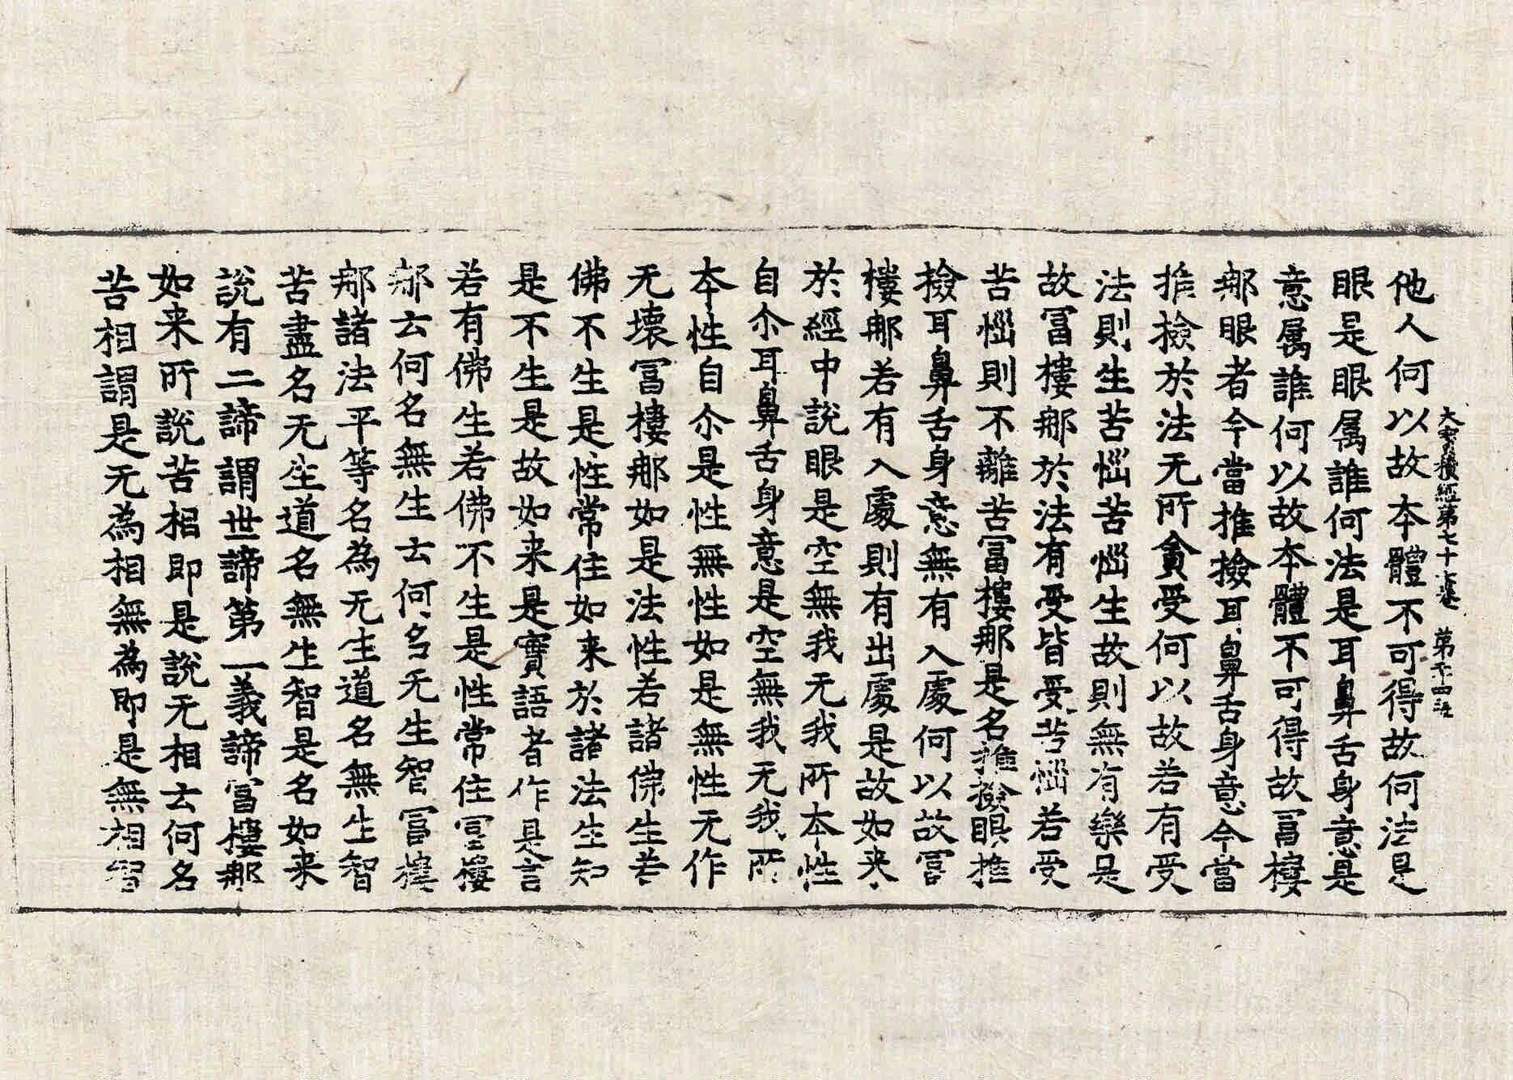 大寶積經第七十七卷 第 十四 張
他人何以故本體不可得故何法是
眼是眼属誰何法是耳鼻舌身意是
意属誰何以故本體不可得故冨樓
那眼者今當推撿耳鼻舌身意今當
推撿於法无所貪受何以故若有受
法則生苦惱苦惱生故則無有樂是
故冨樓那於法有受皆受苦惱若受
苦惱則不離苦冨樓那是名推撿眼推
撿耳鼻舌身意無有入處何以故冨
樓那若有入處則有出處是故如来
於經中說眼是空無我无我所本性
自尒耳鼻舌身意是空無我无我所
本性自尒是性無性如是無性无作
无壞冨樓那如是法性若諸佛生若
佛不生是性常住如来於諸法生知
是不生是故如来是實語者作是言
若有佛生若佛不生是性常住冨樓
那云何名無生云何名无生智冨樓
那諸法平等名為无生道名無生智
苦盡名无生道名無生智是名如来
說有二諦謂世諦第一義諦冨樓那
如来所說苦相即是說无相云何名
苦相謂是无為相無為即是無相智